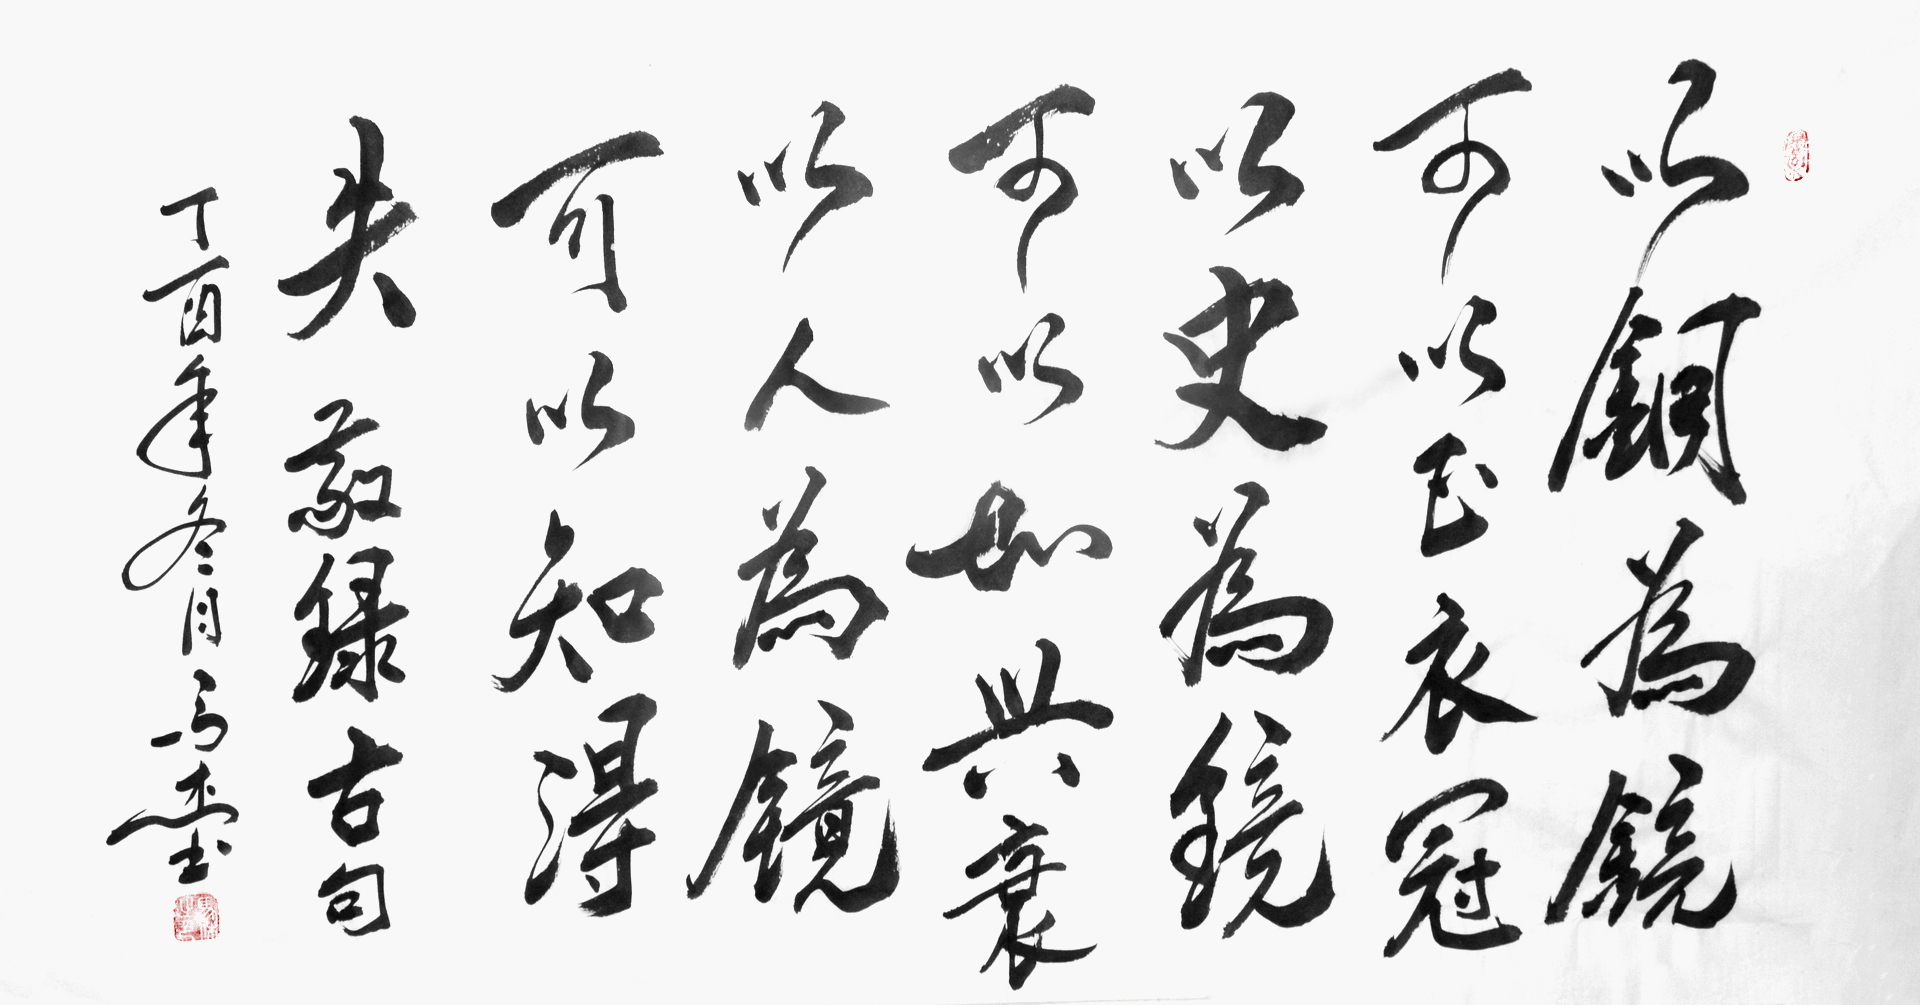 以銅為鏡
可以正衣冠
以史為鏡
可以知興衰
以人為鏡
可以知得
失 敬録古句
丁酉年冬月马杰书